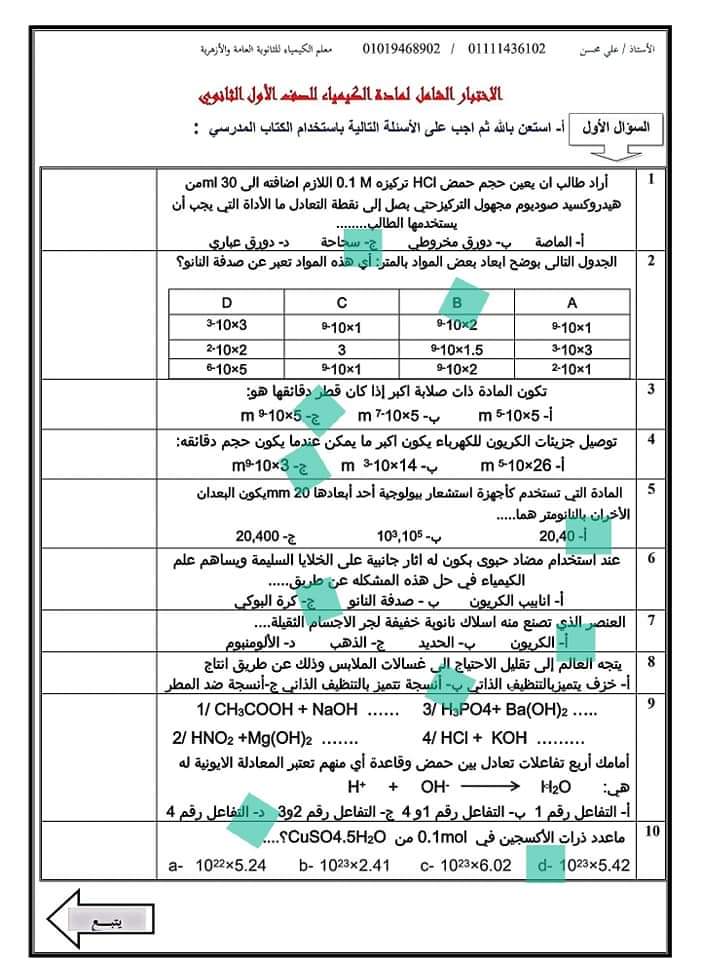 الأستاذ / علي محسن 01111436102 / 01019468902 معلم الكيمياء للثانوية العامة والأزهرية
الاختبار الشامل لمادة الكيمياء للصف الأول الثانوي
السؤال الأول أ- استعن بالله ثم اجب على الأسئلة التالية باستخدام الكتاب المدرسي :
1 أراد طالب ان يعين حجم حمض HCl تركيزه 0.1 M اللازم اضافته الى 30 ml من
هيدروكسيد صوديوم مجهول التركيزحتي يصل إلى نقطة التعادل ما الأداة التي يجب أن
يستخدمها الطالب........
أ- الماصة ب- دورق مخروطي ج- سحاحة د- دورق عياري
2 الجدول التالى بوضح ابعاد بعض المواد بالمتر: أي هذه المواد تعبر عن صدفة النانو؟
D C B A
3-10×3 9-10×1 9-10×2 9-10×1
2-10×2 3 9-10×1.5 3-10×3
6-10×5 9-10×1 9-10×2 2-10×1
3 تكون المادة ذات صلابة اكبر إذا كان قطر دقائقها هو:
أ- 5×10-5 m ب- 5×10-7 m ج- 5×10-9 m
4 توصيل جزيئات الكربون للكهرباء يكون اكبر ما يمكن عندما يكون حجم دقائقه:
أ- 26×10-5 m ب- 14×10-3 m ج- 3×10-9 m
5 المادة التي تستخدم كأجهزة استشعار بيولوجية أحد أبعادها 20 mm يكون البعدان
الأخران بالنانومتر هما.....
أ- 20,40 ب- 10³,10⁵ ج- 20,400
6 عند استخدام مضاد حيوى بكون له اثار جانبية على الخلايا السليمة ويساهم علم
الكيمياء في حل هذه المشكله عن طريق.....
أ- انابيب الكربون ب - صدفة النانو ج- كرة البوكي
7 العنصر الذي تصنع منه اسلاك نانوية خفيفة لجر الاجسام الثقيلة....
أ- الكربون ب- الحديد ج- الذهب د- الألومنيوم
8 يتجه العالم إلى تقليل الاحتياج الى غسالات الملابس وذلك عن طريق انتاج
أ- خزف يتميزبالتنظيف الذاتي ب- أنسجة تتميز بالتنظيف الذاتي ج-أنسجة ضد المطر
9 1/ CH₃COOH + NaOH ...... 3/ H₃PO4+ Ba(OH)₂ .....
2/ HNO₂ +Mg(OH)₂ ....... 4/ HCl + KOH .........
أمامك أربع تفاعلات تعادل بين حمض وقاعدة أي منهم تعتبر المعادلة الايونية له
هي: H⁺ + OH⁻ ⟶ H₂O
أ- التفاعل رقم 1 ب- التفاعل رقم 1و 4 ج- التفاعل رقم 2و3 د- التفاعل رقم 4
10 ماعدد ذرات الأكسجين في 0.1mol من CuSO4.5H₂O؟....
a- 10²²×5.24 b- 10²³×2.41 c- 10²³×6.02 d- 10²³×5.42
يتبـــع